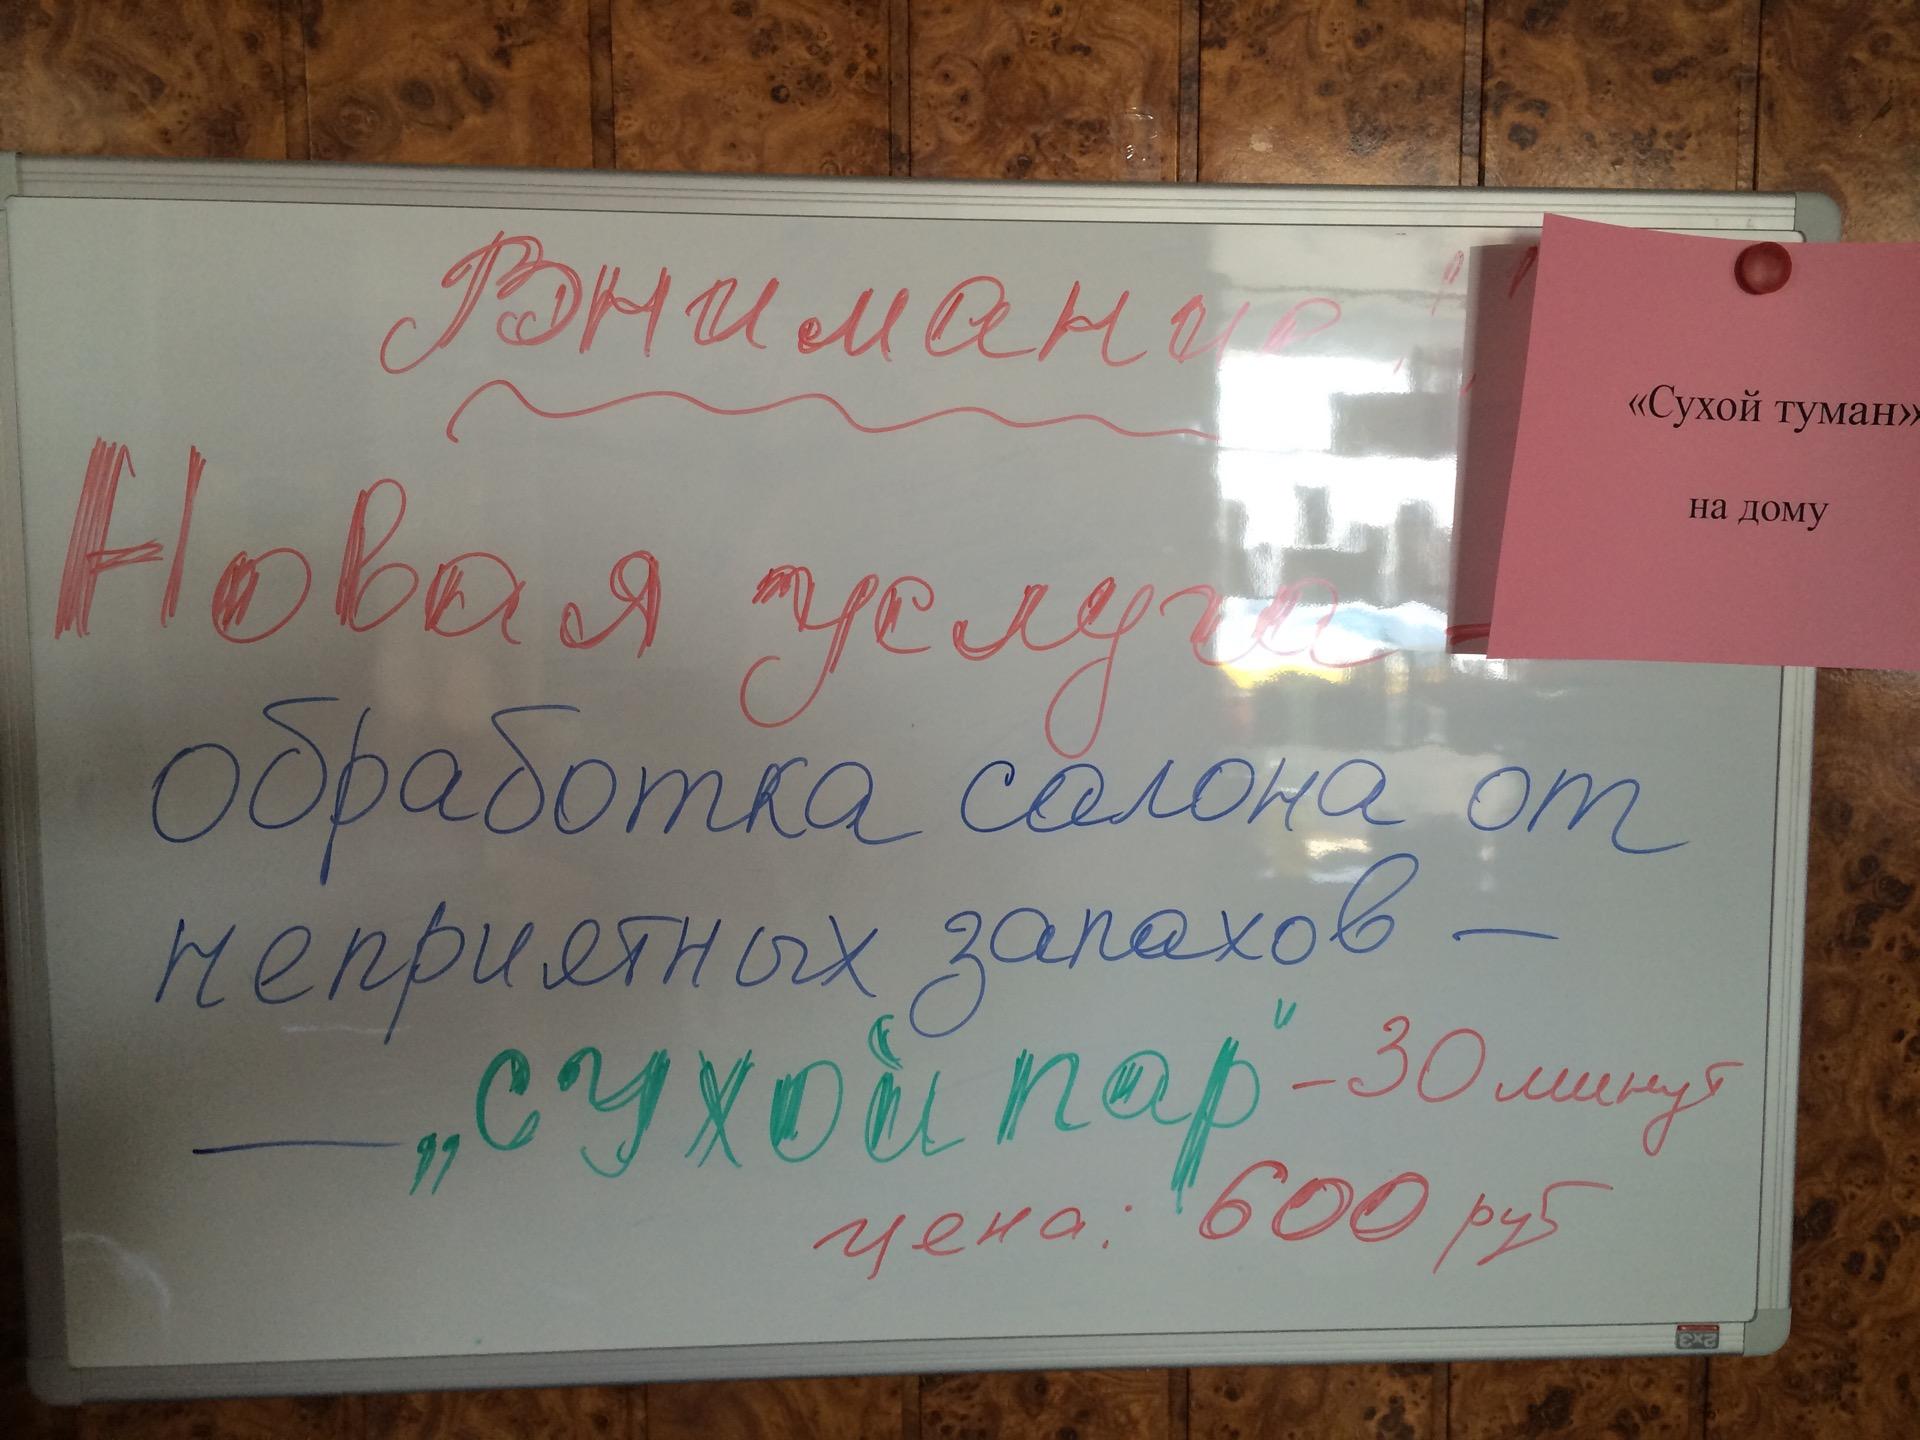 Внимание!!
«Сухой туман»
на дому
Новая услуга –
обработка салона от
неприятных запахов –
— „сухой пар" – 30 минут
цена: 600 руб
2x3